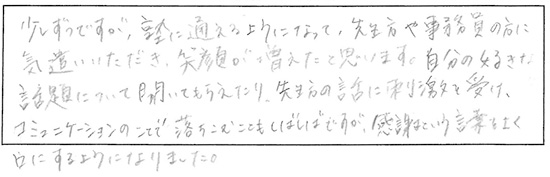 少しずつですが、塾に通えるようになって、先生方や事務員の方に
気遣いいただき、笑顔が増えたと思います。自分の好きな
話題について聞いてもらえたり、先生方の話に刺激を受け、
コミュニケーションのことで落ちこむこともしばしばですが、感謝という言葉をよく
口にするようになりました。